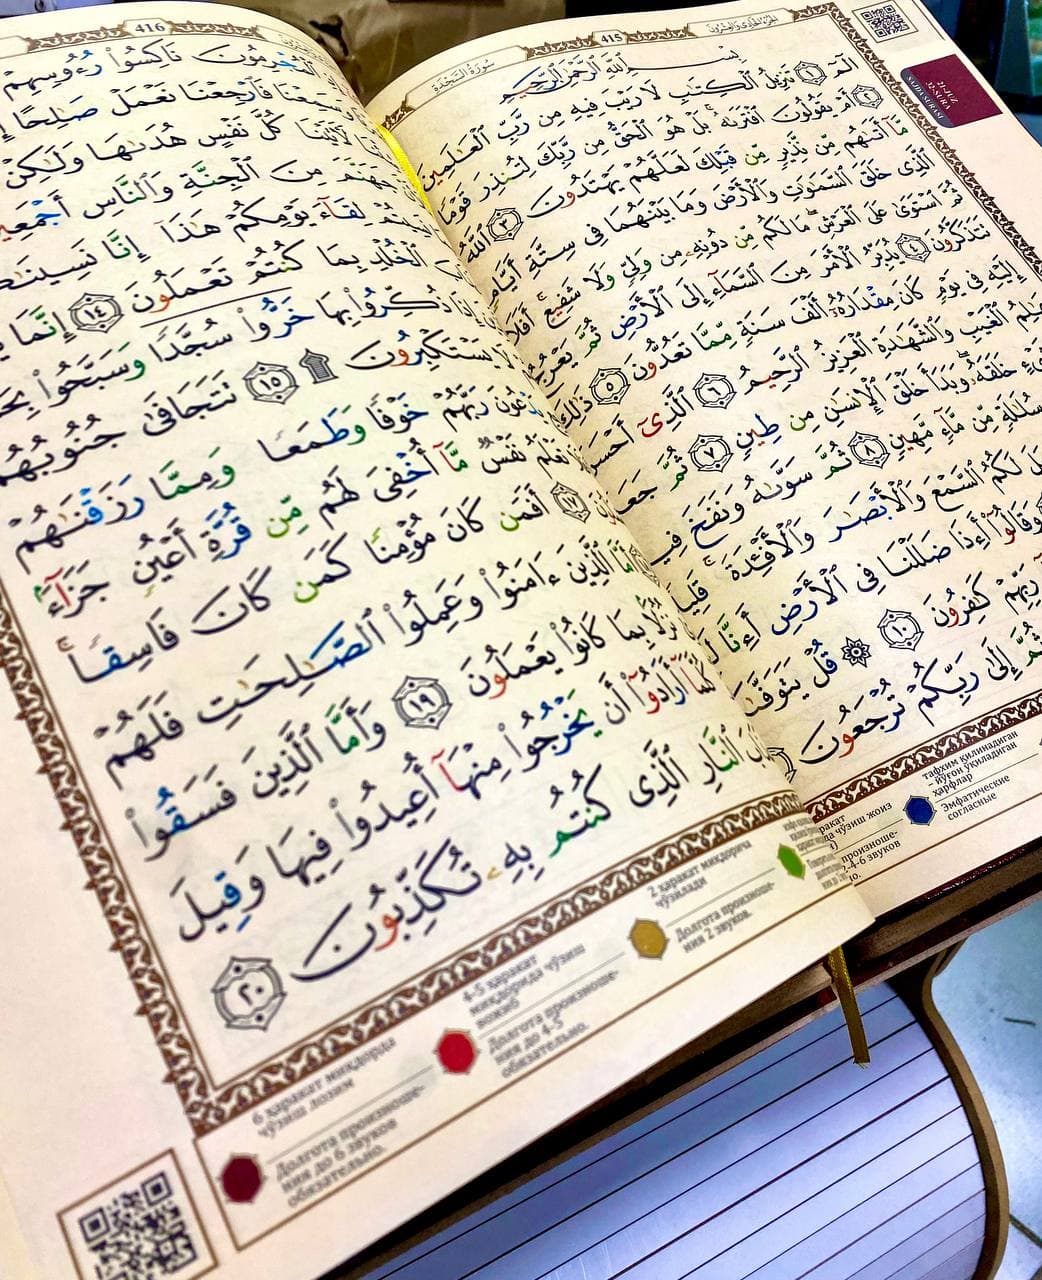 415
سُورَةُ السَّجْدَةِ
الجُزْءُ الحَادِي وَالعِشْرُونَ
21-JUZ
32-SURA
SAJDA SURASI
بِسْمِ ٱللَّهِ ٱلرَّحْمَٰنِ ٱلرَّحِيمِ
الٓمٓ ١ تَنزِيلُ ٱلْكِتَٰبِ لَا رَيْبَ فِيهِ مِن رَّبِّ ٱلْعَٰلَمِينَ
٢ أَمْ يَقُولُونَ ٱفْتَرَىٰهُ ۚ بَلْ هُوَ ٱلْحَقُّ مِن رَّبِّكَ لِتُنذِرَ قَوْمًا
مَّآ أَتَىٰهُم مِّن نَّذِيرٍ مِّن قَبْلِكَ لَعَلَّهُمْ يَهْتَدُونَ ٣ ٱللَّهُ
ٱلَّذِى خَلَقَ ٱلسَّمَٰوَٰتِ وَٱلْأَرْضَ وَمَا بَيْنَهُمَا فِى سِتَّةِ أَيَّامٍ
ثُمَّ ٱسْتَوَىٰ عَلَى ٱلْعَرْشِ ۖ مَا لَكُم مِّن دُونِهِۦ مِن وَلِىٍّ وَلَا شَفِيعٍ ۚ أَفَلَا
تَتَذَكَّرُونَ ٤ يُدَبِّرُ ٱلْأَمْرَ مِنَ ٱلسَّمَآءِ إِلَى ٱلْأَرْضِ ثُمَّ يَعْرُجُ
إِلَيْهِ فِى يَوْمٍ كَانَ مِقْدَارُهُۥٓ أَلْفَ سَنَةٍ مِّمَّا تَعُدُّونَ ٥ ذَٰلِكَ
ٱلْغَيْبِ وَٱلشَّهَٰدَةِ ٱلْعَزِيزُ ٱلرَّحِيمُ ٦ ٱلَّذِىٓ أَحْسَنَ
خَلَقَهُۥ ۖ وَبَدَأَ خَلْقَ ٱلْإِنسَٰنِ مِن طِينٍ ٧ ثُمَّ جَعَلَ
مِّن مَّآءٍ مَّهِينٍ ٨ ثُمَّ سَوَّىٰهُ وَنَفَخَ فِيهِ
لَكُمُ ٱلسَّمْعَ وَٱلْأَبْصَٰرَ وَٱلْأَفْـِٔدَةَ ۚ قَلِيلًا
وَقَالُوٓا۟ أَءِذَا ضَلَلْنَا فِى ٱلْأَرْضِ أَءِنَّا
رَبِّهِمْ كَٰفِرُونَ ١٠ ۞ قُلْ يَتَوَفَّىٰكُم
ثُمَّ إِلَىٰ رَبِّكُمْ تُرْجَعُونَ
тафхим қилинадиган
– йўғон ўқиладиган
ҳарфлар
Эмфатические
согласные
чўзиш жоиз
произноше-
2-4-6 звуков
416
ٱلْمُجْرِمُونَ نَاكِسُوا۟ رُءُوسِهِمْ
فَٱرْجِعْنَا نَعْمَلْ صَٰلِحًا
لَءَاتَيْنَا كُلَّ نَفْسٍ هُدَىٰهَا وَلَٰكِنْ
جَهَنَّمَ مِنَ ٱلْجِنَّةِ وَٱلنَّاسِ أَجْمَعِينَ
لِقَآءَ يَوْمِكُمْ هَٰذَآ إِنَّا نَسِينَٰكُمْ
ٱلْخُلْدِ بِمَا كُنتُمْ تَعْمَلُونَ ١٤ إِنَّمَا
إِذَا ذُكِّرُوا۟ بِهَا خَرُّوا۟ سُجَّدًا وَسَبَّحُوا۟
لَا يَسْتَكْبِرُونَ ۩ ١٥ تَتَجَافَىٰ جُنُوبُهُمْ
يَدْعُونَ رَبَّهُمْ خَوْفًا وَطَمَعًا وَمِمَّا رَزَقْنَٰهُمْ
تَعْلَمُ نَفْسٌ مَّآ أُخْفِىَ لَهُم مِّن قُرَّةِ أَعْيُنٍ جَزَآءًۢ
١٧ أَفَمَن كَانَ مُؤْمِنًا كَمَن كَانَ فَاسِقًا ۚ
أَمَّا ٱلَّذِينَ ءَامَنُوا۟ وَعَمِلُوا۟ ٱلصَّٰلِحَٰتِ فَلَهُمْ
نُزُلًۢا بِمَا كَانُوا۟ يَعْمَلُونَ ١٩ وَأَمَّا ٱلَّذِينَ فَسَقُوا۟
كُلَّمَآ أَرَادُوٓا۟ أَن يَخْرُجُوا۟ مِنْهَآ أُعِيدُوا۟ فِيهَا وَقِيلَ
عَذَابَ ٱلنَّارِ ٱلَّذِى كُنتُم بِهِۦ تُكَذِّبُونَ ٢٠
6 ҳаракат миқдорда
чўзиш лозим
Долгота произноше-
ния до 6 звуков
обязательно.
4-5 ҳаракат
миқдорида чўзиш
вожиб
Долгота произноше-
ния до 4-5
обязательно.
2 ҳаракат миқдорича
чўзилади
Долгота произноше-
ния 2 звуков.